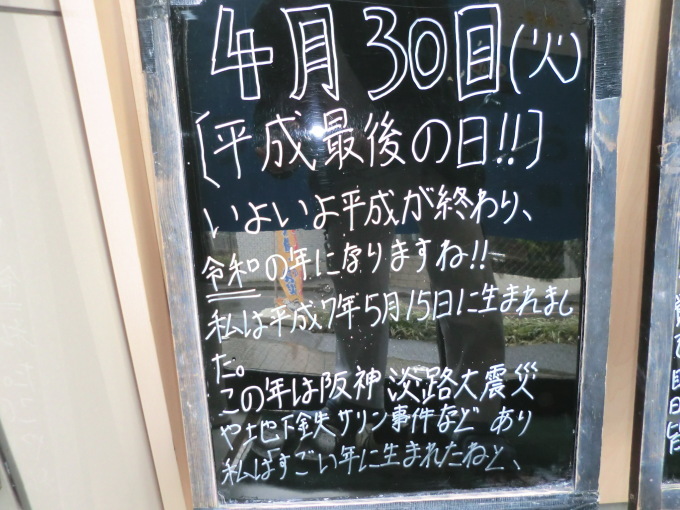 4月30日(火)
[平成最後の日!!]
いよいよ平成が終わり、
令和の年になりますね!!
私は平成7年5月15日に生まれまし
た。
この年は阪神淡路大震災
や地下鉄サリン事件など あり
私はすごい年に生まれたねと、